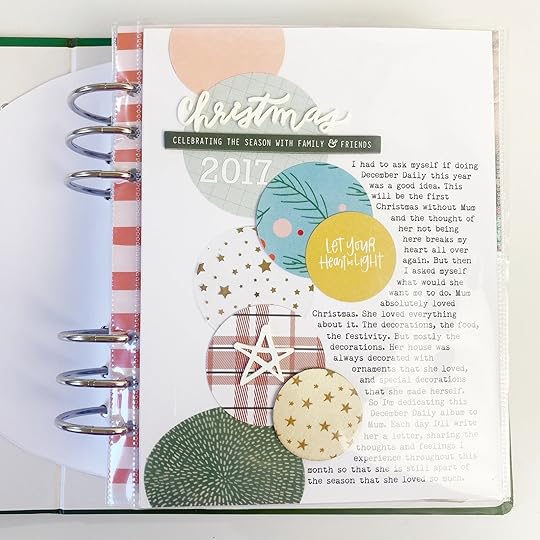 christmas
CELEBRATING THE SEASON WITH FAMILY & FRIENDS
2017
LET YOUR
Heart be LIGHT
I had to ask myself if doing
December Daily this year
was a good idea. This
will be the first
Christmas without Mum
and the thought of
her not being
here breaks my
heart all over
again. But then
I asked myself
what would she
want me to do. Mum
absolutely loved
Christmas. She loved everything
about it. The decorations, the food,
the festivity. But mostly the
decorations. Her house was
always decorated with
ornaments that she loved,
and special decorations
that she made herself.
So I'm dedicating this
December Daily album to
Mum. Each day I'll write
her a letter, sharing the
thoughts and feelings I
experience throughout this
month so that she is still apart of
the season that she loved so much.